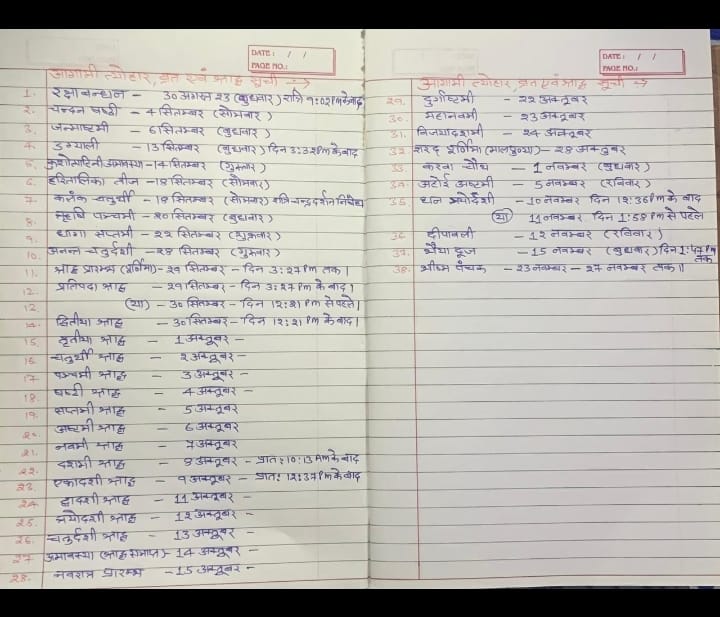 DATE: / /
PAGE NO.:
आगामी त्योहार, व्रत एवं श्राद्ध सूची →
1. रक्षाबन्धन - 30 अगस्त 23 (बुधवार) रात्रि 9:02 PM के बाद
2. चन्दन षष्ठी - 4 सितम्बर (सोमवार)
3. जन्माष्टमी - 6 सितम्बर (बुधवार)
4. डुग्याली - 13 सितम्बर (बुधवार) दिन 3:32 PM के बाद
5. कुशोत्पाटिनी अमावस्या - 14 सितम्बर (गुरुवार)
6. हरितालिका तीज - 18 सितम्बर (सोमवार)
7. कलंक चतुर्थी - 18 सितम्बर (सोमवार) रात्रि चन्द्र दर्शन निषेध
8. ऋषि पञ्चमी - 20 सितम्बर (बुधवार)
9. धागा सप्तमी - 22 सितम्बर (शुक्रवार)
10. अनन्त चतुर्दशी - 28 सितम्बर (गुरुवार)
11. श्राद्ध प्रारम्भ (पूर्णिमा) - 29 सितम्बर - दिन 3:27 PM तक।
12. प्रतिपदा श्राद्ध - 29 सितम्बर - दिन 3:27 PM के बाद।
13. (या) - 30 सितम्बर - दिन 12:21 PM से पहले।
14. द्वितीया श्राद्ध - 30 सितम्बर - दिन 12:21 PM के बाद।
15. तृतीया श्राद्ध - 1 अक्तूबर -
16. चतुर्थी श्राद्ध - 2 अक्तूबर -
17. पञ्चमी श्राद्ध - 3 अक्तूबर -
18. षष्ठी श्राद्ध - 4 अक्तूबर -
19. सप्तमी श्राद्ध - 5 अक्तूबर
20. अष्टमी श्राद्ध - 6 अक्तूबर
21. नवमी श्राद्ध - 7 अक्तूबर
22. दशमी श्राद्ध - 8 अक्तूबर - प्रातः 10:13 AM के बाद
23. एकादशी श्राद्ध - 9 अक्तूबर - प्रातः 12:37 PM के बाद
24. द्वादशी श्राद्ध - 11 अक्तूबर -
25. त्रयोदशी श्राद्ध - 12 अक्तूबर -
26. चतुर्दशी श्राद्ध - 13 अक्तूबर -
27. अमावस्या (श्राद्ध समाप्त) - 14 अक्तूबर -
28. नवरात्र प्रारम्भ - 15 अक्तूबर -
DATE: / /
PAGE NO.:
आगामी त्योहार, व्रत एवं श्राद्ध सूची →
29. दुर्गाष्टमी - 22 अक्तूबर
30. महानवमी - 23 अक्तूबर
31. विजयादशमी - 24 अक्तूबर
32. शरद पूर्णिमा (मालपुण्या) - 28 अक्तूबर
33. करवा चौथ - 1 नवम्बर (बुधवार)
34. अहोई अष्टमी - 5 नवम्बर (रविवार)
35. धन त्रयोदशी - 10 नवम्बर दिन 12:36 PM के बाद
(या) 11 नवम्बर दिन 1:58 PM से पहले
36. दीपावली - 12 नवम्बर (रविवार)
37. भैया दूज - 15 नवम्बर (बुधवार) दिन 1:47 PM तक
38. भीष्म पंचक - 23 नवम्बर - 27 नवम्बर तक॥